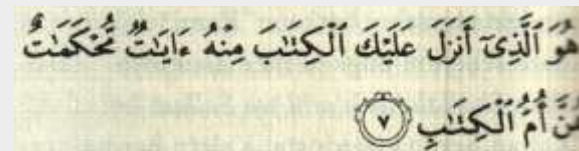 هُوَ ٱلَّذِىٓ أَنزَلَ عَلَيْكَ ٱلْكِتَٰبَ مِنْهُ ءَايَٰتٌ مُّحْكَمَٰتٌ
هُنَّ أُمُّ ٱلْكِتَٰبِ ٧